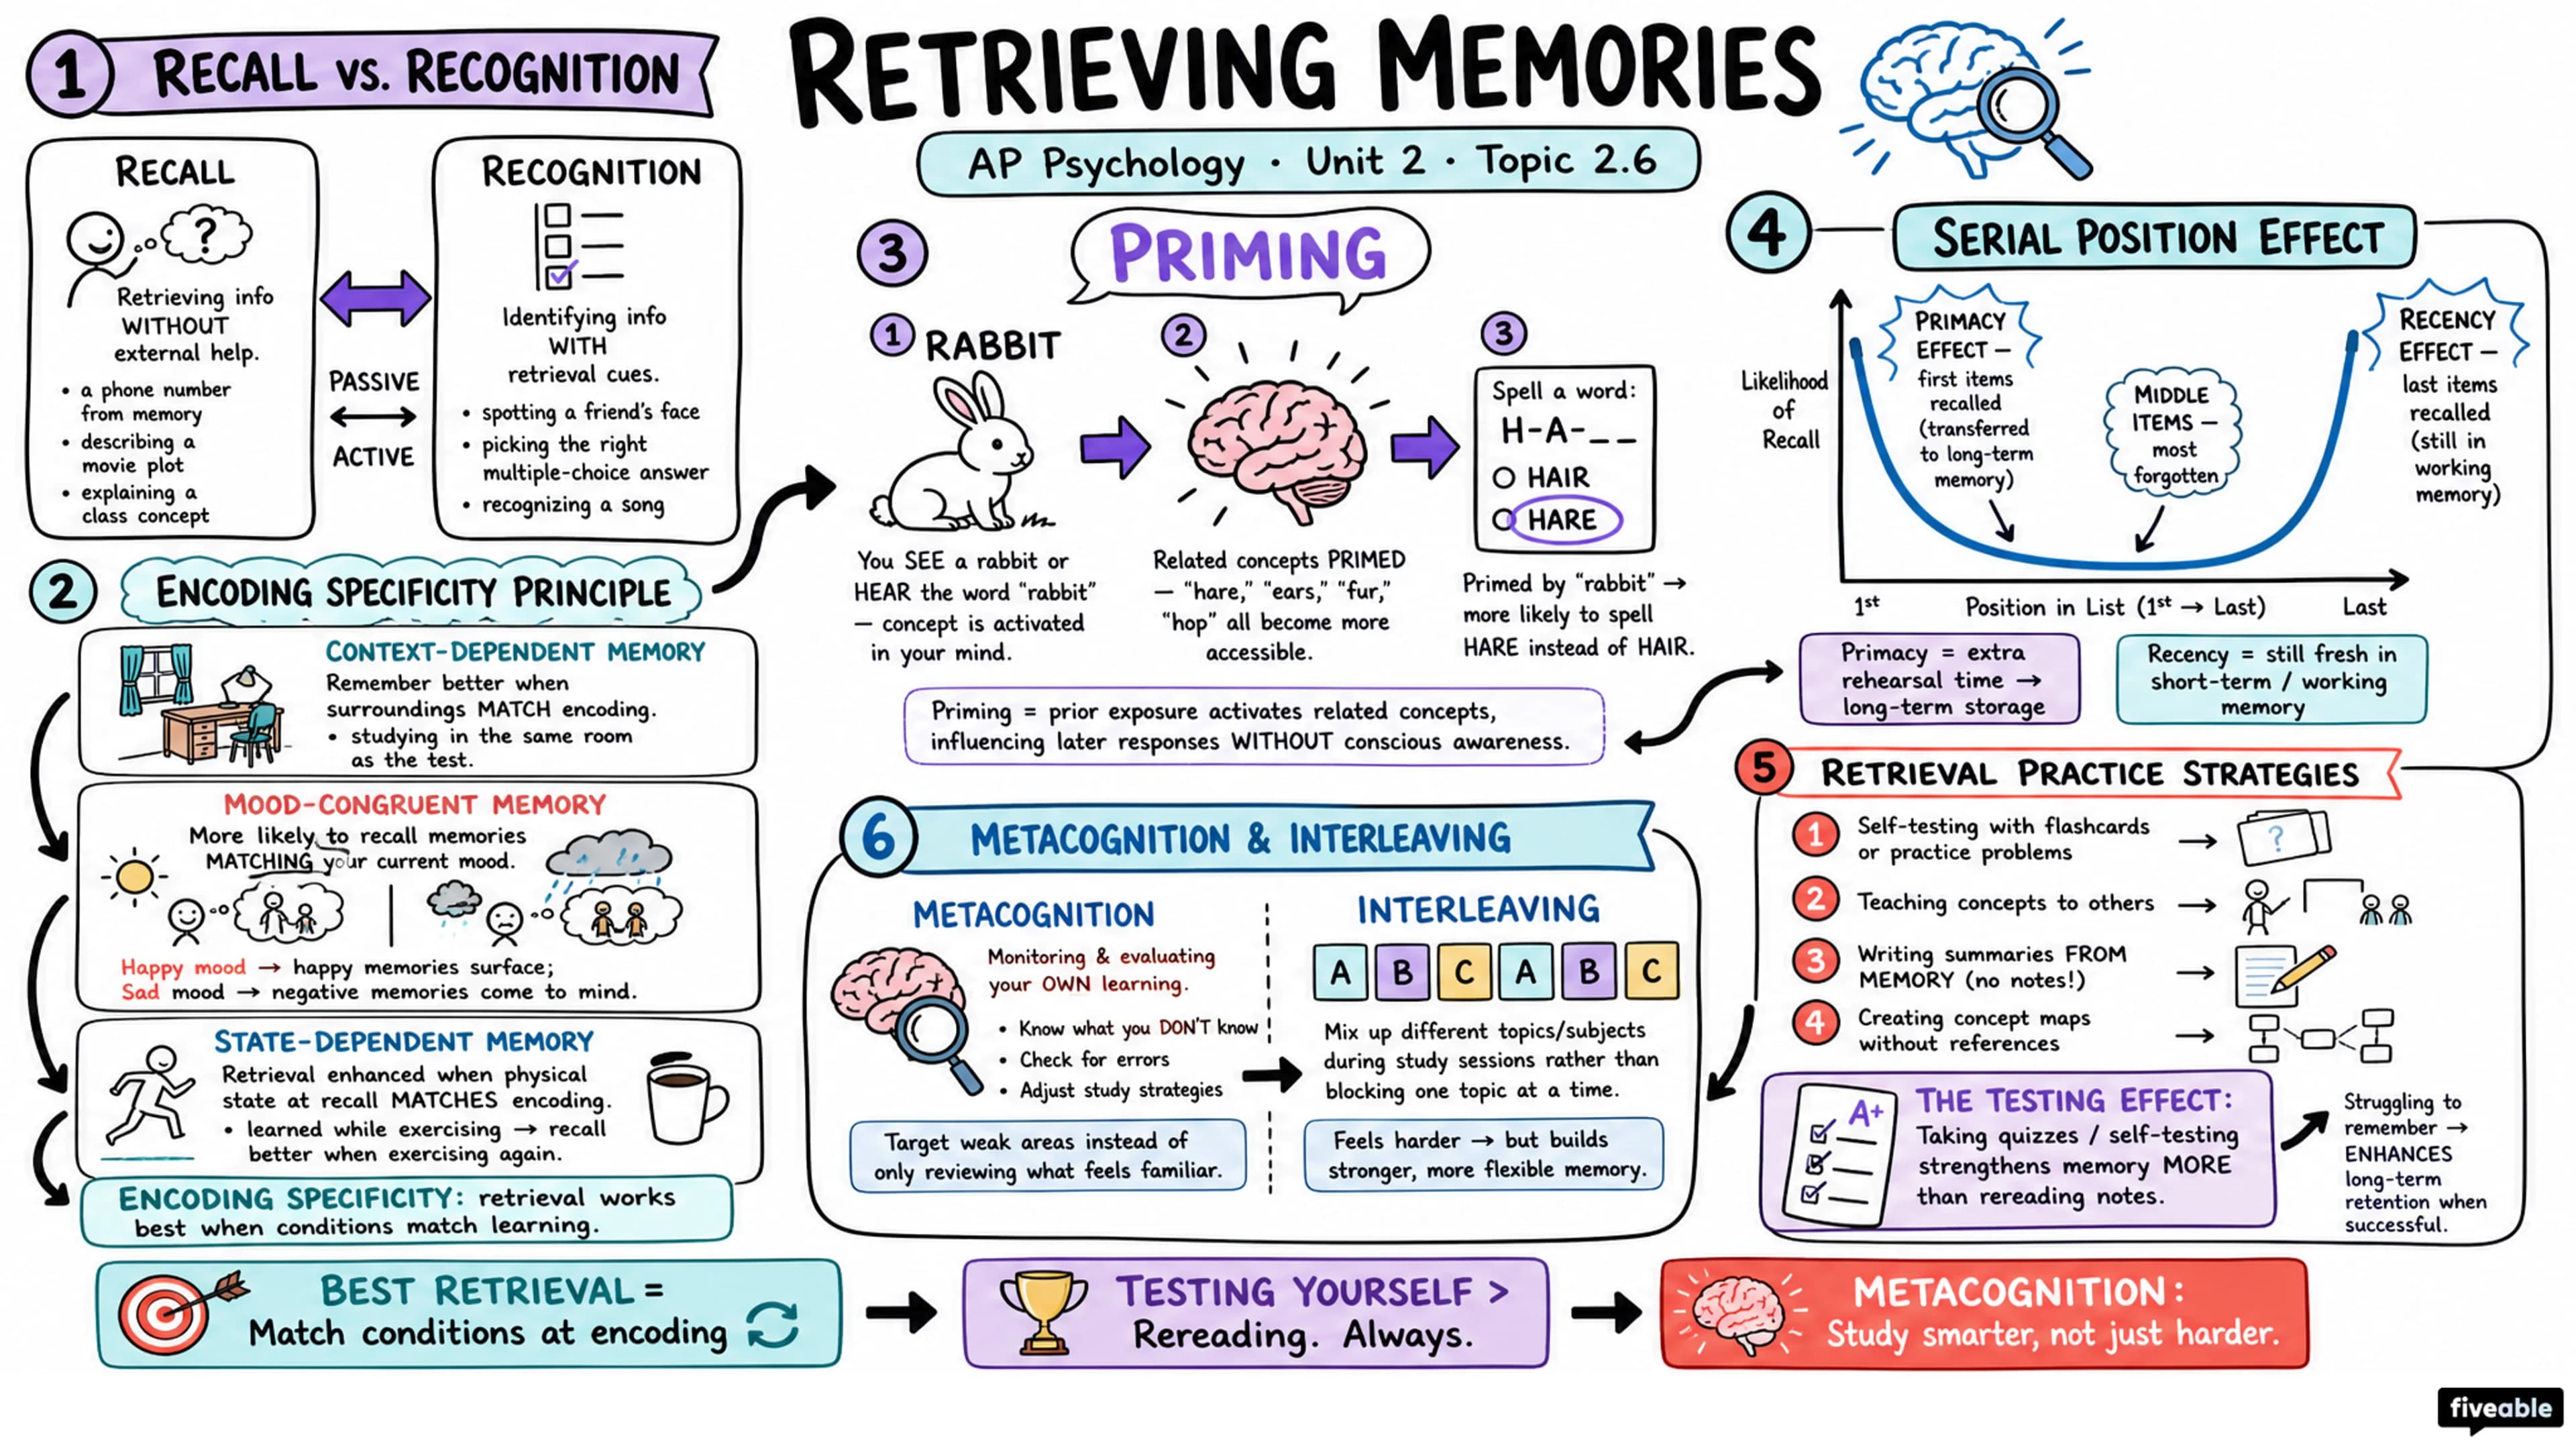 RETRIEVING MEMORIES
AP Psychology · Unit 2 · Topic 2.6
1 RECALL VS. RECOGNITION
RECALL
?
Retrieving info
WITHOUT
external help.
• a phone number
from memory
• describing a
movie plot
• explaining a
class concept
PASSIVE
ACTIVE
RECOGNITION
Identifying info
WITH
retrieval cues.
• spotting a friend's face
• picking the right
multiple-choice answer
• recognizing a song
2 ENCODING SPECIFICITY PRINCIPLE
CONTEXT-DEPENDENT MEMORY
Remember better when
surroundings MATCH encoding.
• studying in the same room
as the test.
MOOD-CONGRUENT MEMORY
More likely to recall memories
MATCHING your current mood.
Happy mood → happy memories surface;
Sad mood → negative memories come to mind.
STATE-DEPENDENT MEMORY
Retrieval enhanced when physical
state at recall MATCHES encoding.
• learned while exercising → recall
better when exercising again.
ENCODING SPECIFICITY: retrieval works
best when conditions match learning.
3 PRIMING
1 RABBIT
You SEE a rabbit or
HEAR the word "rabbit"
— concept is activated
in your mind.
2
Related concepts PRIMED
— "hare," "ears," "fur,"
"hop" all become more
accessible.
3
Spell a word:
H-A-_ _
HAIR
HARE
Primed by "rabbit" →
more likely to spell
HARE instead of HAIR.
Priming = prior exposure activates related concepts,
influencing later responses WITHOUT conscious awareness.
4 SERIAL POSITION EFFECT
Likelihood
of
Recall
PRIMACY
EFFECT —
first items
recalled
(transferred
to long-term
memory)
MIDDLE
ITEMS —
most
forgotten
RECENCY
EFFECT —
last items
recalled
(still in
working
memory)
1st Position in List (1st → Last) Last
Primacy = extra
rehearsal time →
long-term storage
Recency = still fresh in
short-term / working
memory
5 RETRIEVAL PRACTICE STRATEGIES
1 Self-testing with flashcards
or practice problems →
?
2 Teaching concepts to others →
3 Writing summaries FROM
MEMORY (no notes!) →
4 Creating concept maps
without references →
A+
THE TESTING EFFECT:
Taking quizzes / self-testing
strengthens memory MORE
than rereading notes.
Struggling to
remember →
ENHANCES
long-term
retention when
successful.
6 METACOGNITION & INTERLEAVING
METACOGNITION
Monitoring & evaluating
your OWN learning.
• Know what you DON'T know
• Check for errors
• Adjust study strategies
Target weak areas instead of
only reviewing what feels familiar.
INTERLEAVING
A B C A B C
Mix up different topics/subjects
during study sessions rather than
blocking one topic at a time.
Feels harder → but builds
stronger, more flexible memory.
BEST RETRIEVAL =
Match conditions at encoding
TESTING YOURSELF >
Rereading. Always.
METACOGNITION:
Study smarter, not just harder.
fiveable